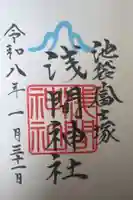 池袋富士塚
浅間神社
令和八年一月三十一日